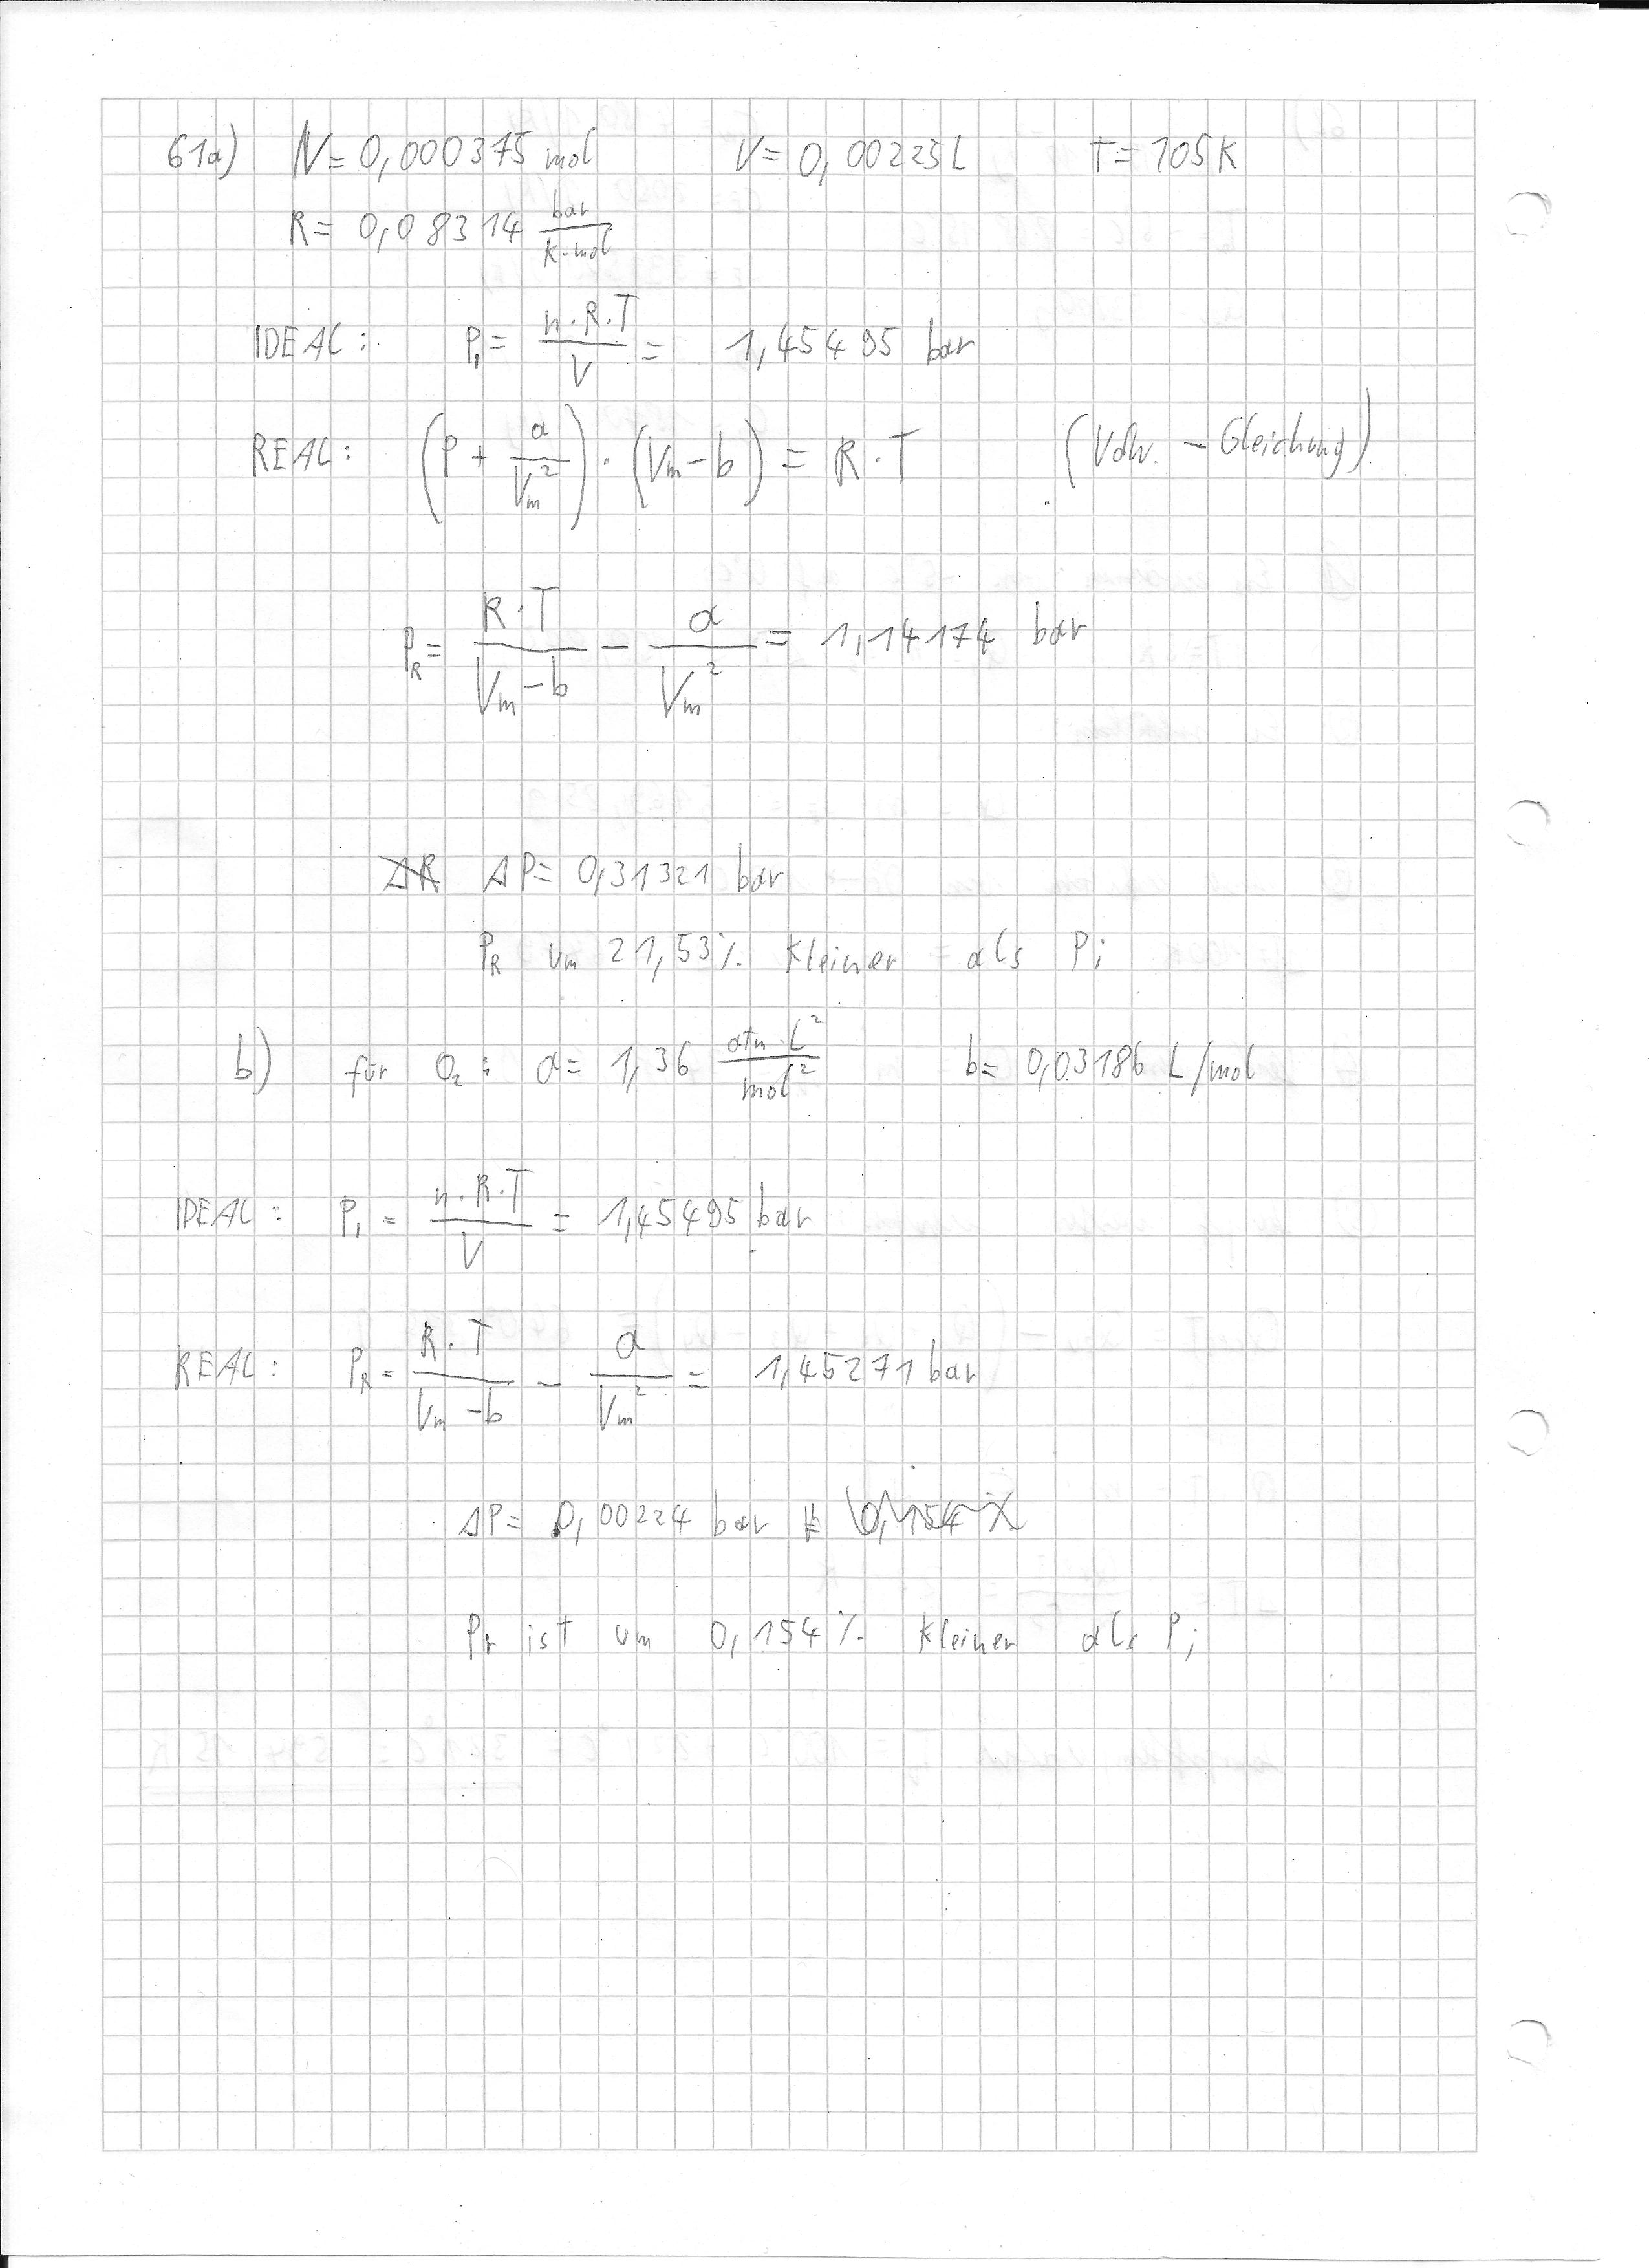 61a) N = 0,000375 mol V = 0,00225 L T = 105 K
R = 0,08314 bar / K·mol
IDEAL: P_I = n·R·T / V = 1,45495 bar
REAL: (P + a / V_m²) · (V_m - b) = R·T (VdW. - Gleichung)
P_R = R·T / V_m - b - a / V_m² = 1,14174 bar
ΔP = 0,31321 bar
P_R um 21,53% kleiner als P_i
b) für O₂: a = 1,36 atm·L² / mol² b = 0,03186 L/mol
IDEAL: P_I = n·R·T / V = 1,45495 bar
REAL: P_R = R·T / V_m - b - a / V_m² = 1,45271 bar
ΔP = 0,00224 bar
P_r ist um 0,154% kleiner als P_i